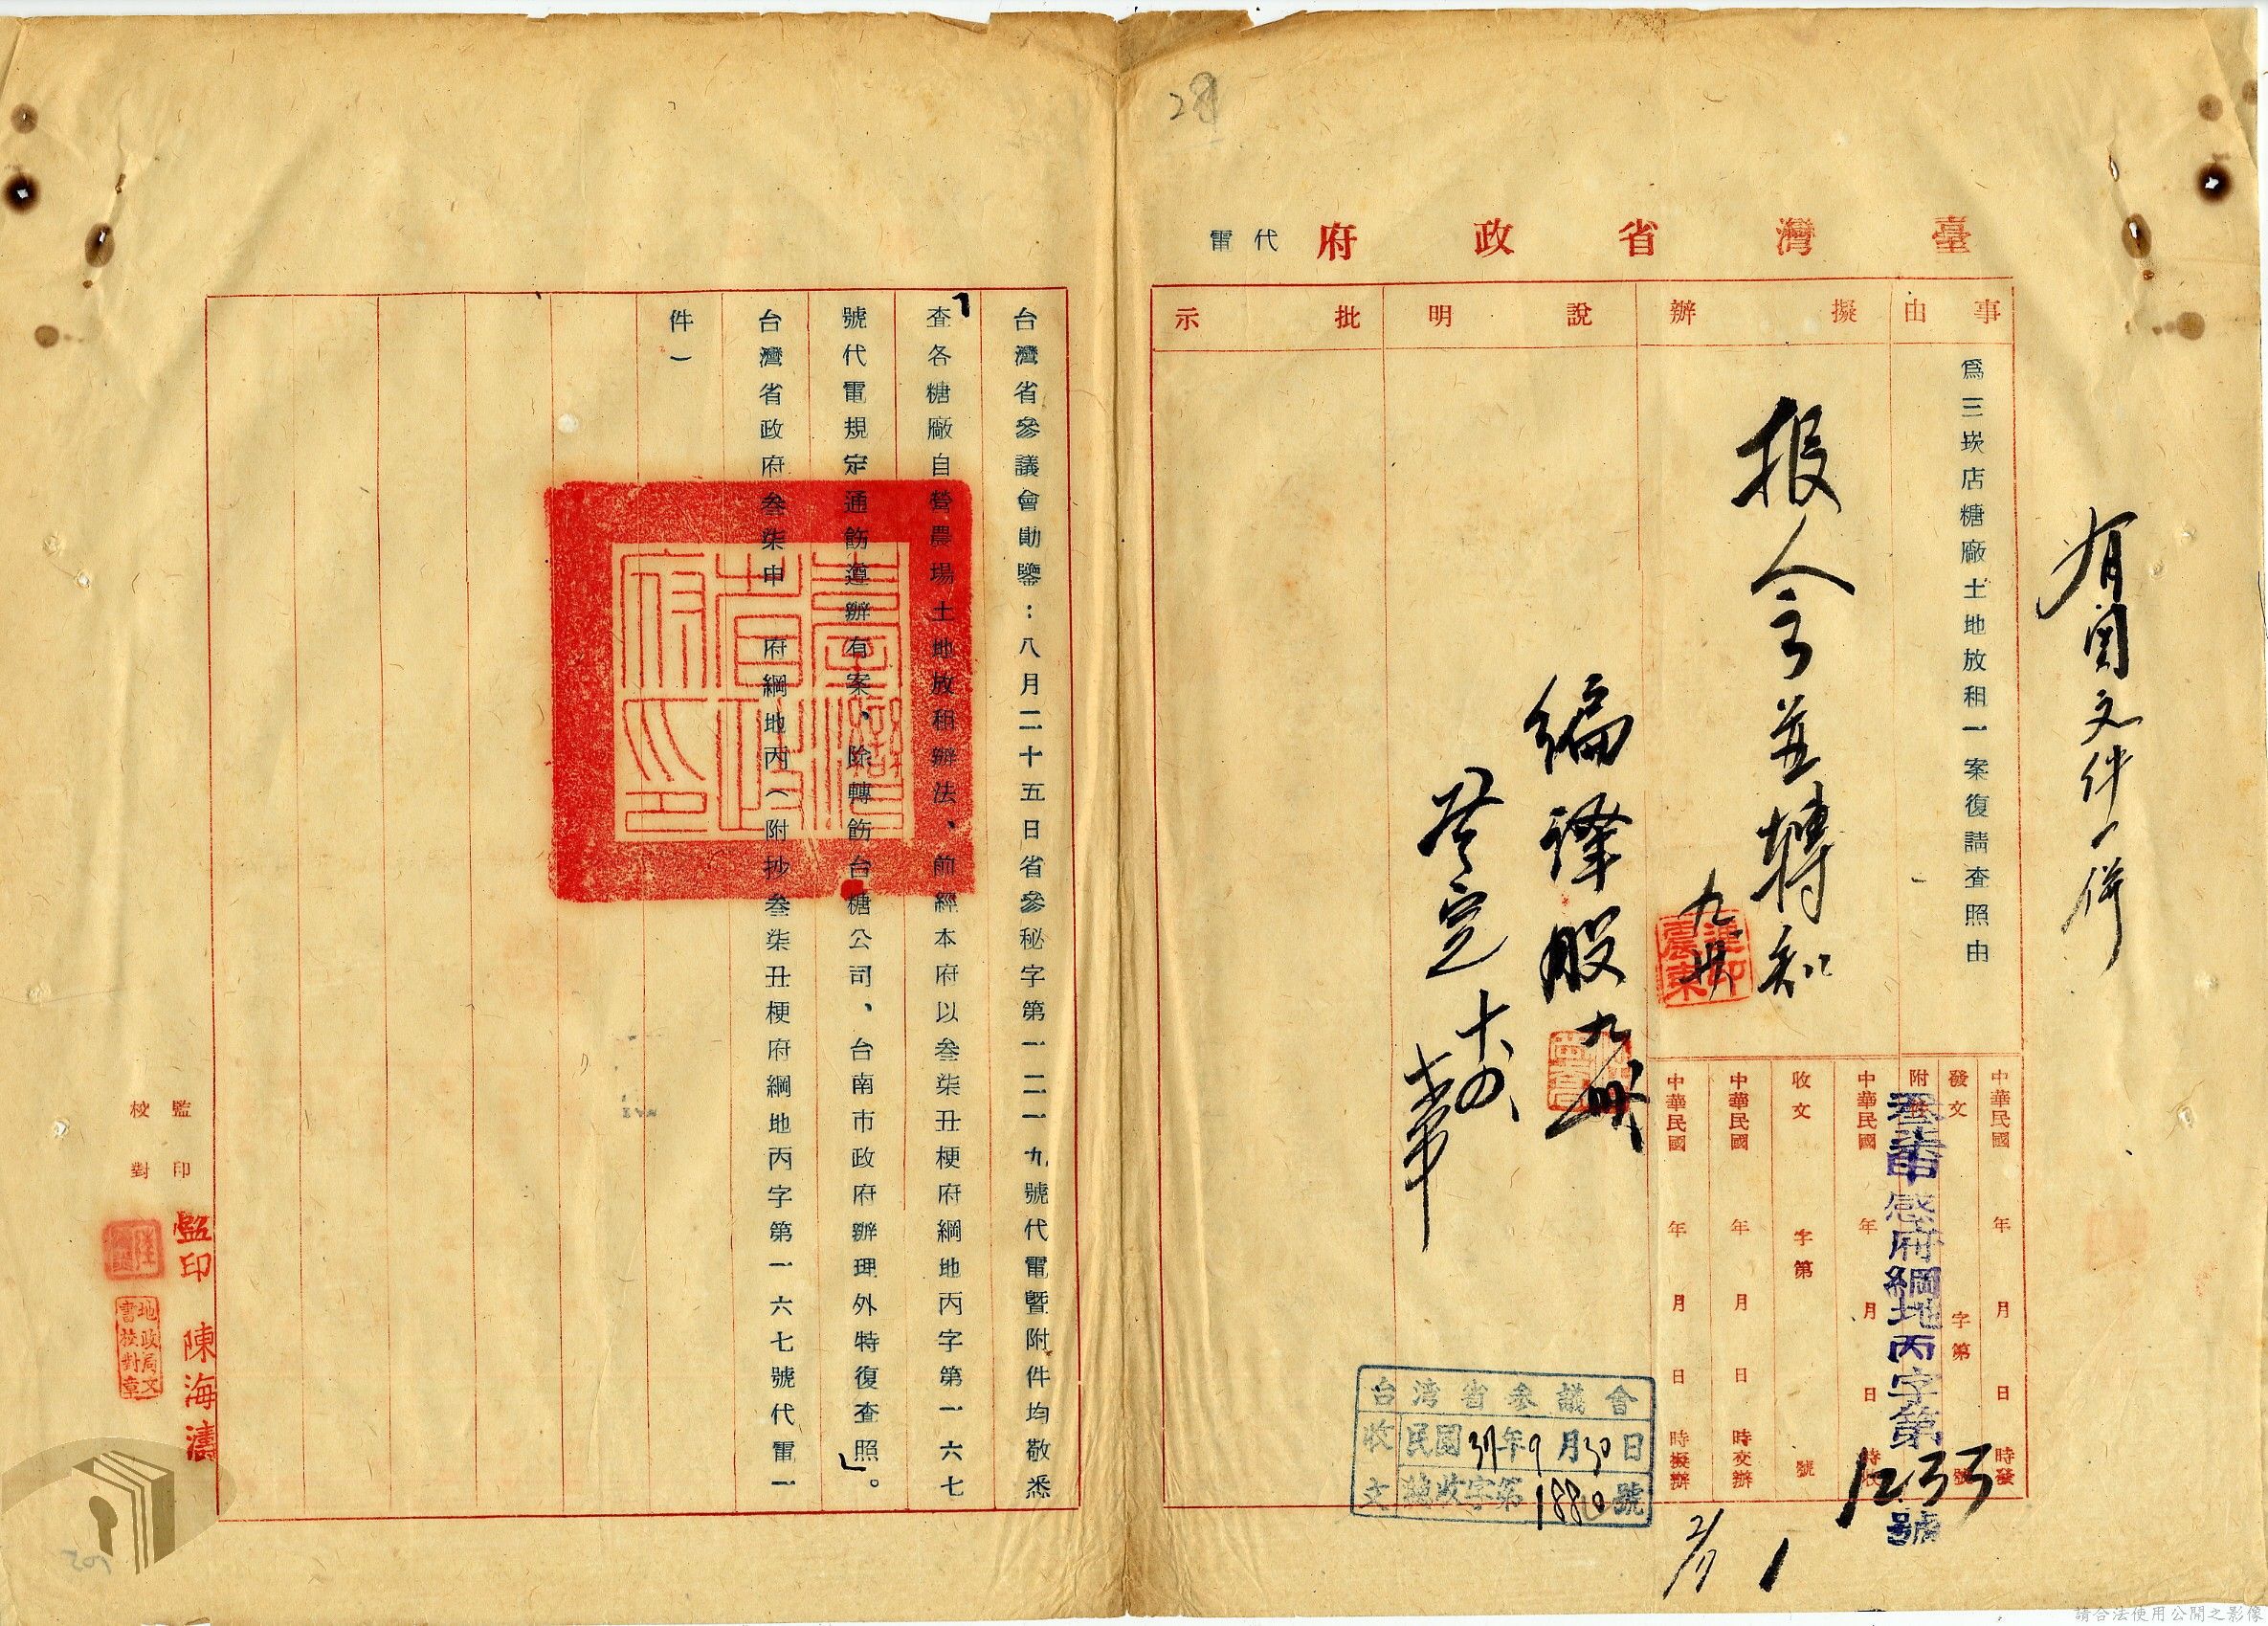 有關文件一併
臺灣省政府 代電
事由
擬辦
說明
批示
為三崁店糖廠土地放租一案復請查照由
報人令並轉知
編譯股
中華民國 年 月 日 時發
發文 字第 號
附
叁柒申 府綱地丙字第1233號
中華民國 年 月 日 時收
收文 字第 號
中華民國 年 月 日 時交辦
中華民國 年 月 日 時擬辦
台湾省参議會
收文
民國37年9月30日
總收字第1880號
台灣省參議會勛鑒：八月二十五日省參秘字第一二一九號代電暨附件均敬悉
「查各糖廠自營農場土地放租辦法、前經本府以叁柒丑梗府綱地丙字第一六七
號代電規定通飭遵辦有案、除轉飭台糖公司、台南市政府辦理外特復查照。」
台灣省政府叁柒申 府綱地丙（附抄叁柒丑梗府綱地丙字第一六七號代電一
件一
臺灣省政府印
監印
監印 陳海濤
校對
地政局文書校對章
請合法使用公開之影像